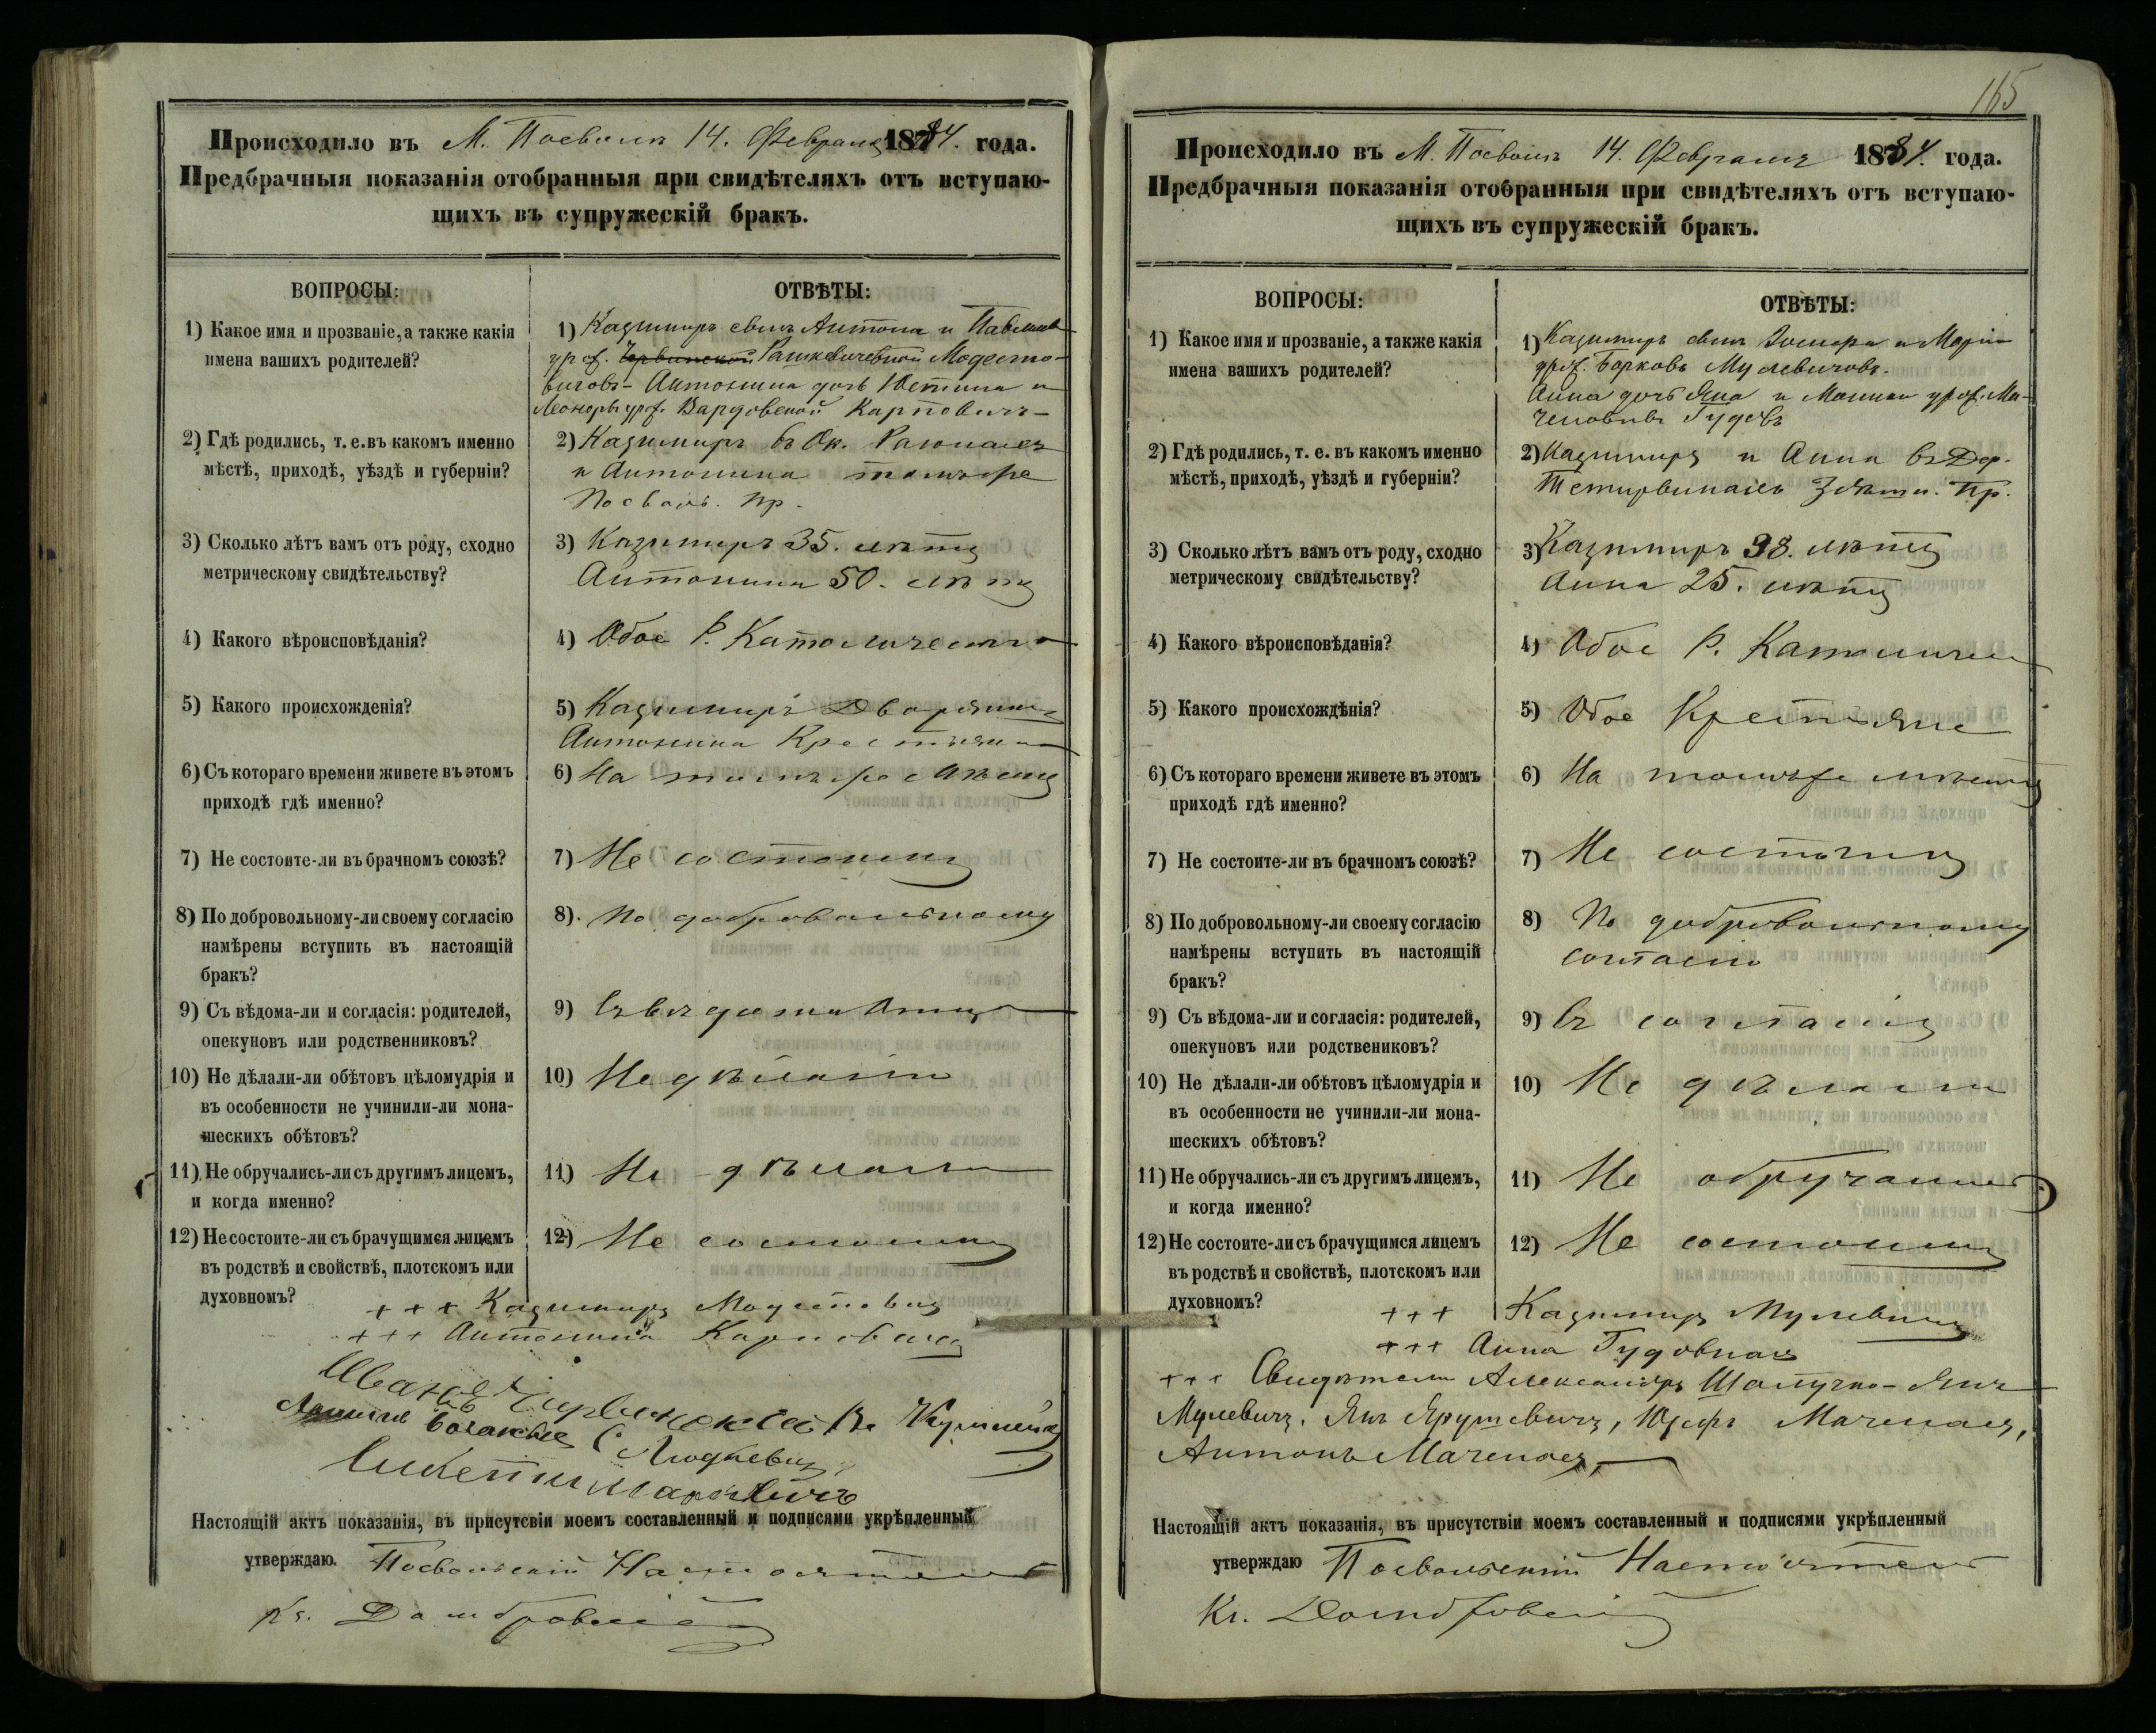 Происходило въ М. Посволѣ 14. Февраля 1884. года.
Предбрачныя показанія отобранныя при свидѣтеляхъ отъ вступаю-
щихъ въ супружескій бракъ.
ВОПРОСЫ:
ОТВѢТЫ:
1) Какое имя и прозваніе, а также какія
имена вашихъ родителей?
1) Казимиръ сынъ Антона и
Антонина дочь
2) Гдѣ родились, т. е. въ какомъ именно
мѣстѣ, приходѣ, уѣздѣ и губерніи?
2) Казимиръ въ Ок.
и Антонина
Посвол. пр.
3) Сколько лѣтъ вамъ отъ роду, сходно
метрическому свидѣтельству?
3) Казимиръ 35. лѣтъ
Антонина 50. лѣтъ
4) Какого вѣроисповѣданія?
4) Обое Р. Католическаго
5) Какого происхожденія?
5) Казимиръ Дворянинъ
Антонина Крестьянка
6) Съ котораго времени живете въ этомъ
приходѣ гдѣ именно?
6) На томъ же мѣстѣ
7) Не состоите-ли въ брачномъ союзѣ?
7) Не состоимъ
8) По добровольному-ли своему согласію
намѣрены вступить въ настоящій
бракъ?
8). По добровольному
9) Съ вѣдома-ли и согласія: родителей,
опекуновъ или родственниковъ?
9) Съ вѣдома
10) Не дѣлали-ли обѣтовъ цѣломудрія и
въ особенности не учинили-ли мона-
шескихъ обѣтовъ?
10) Не дѣлали
11) Не обручались-ли съ другимъ лицемъ,
и когда именно?
11) Не дѣлали
12) Не состоите-ли съ брачущимся лицемъ
въ родствѣ и свойствѣ, плотскомъ или
духовномъ?
12) Не состоимъ
+++ Казимиръ Модестовичъ
+++ Антонина
Настоящій актъ показанія, въ присутсвіи моемъ составленный и подписями укрѣпленный
утверждаю. Посвольскій Настоятель
Кс. Домбровскій
165
Происходило въ М. Посволѣ 14. Февраля 1884. года.
Предбрачныя показанія отобранныя при свидѣтеляхъ отъ вступаю-
щихъ въ супружескій бракъ.
ВОПРОСЫ:
ОТВѢТЫ:
1) Какое имя и прозваніе, а также какія
имена вашихъ родителей?
1) Казимиръ сынъ и Маріи
Анна дочь Яна и
2) Гдѣ родились, т. е. въ какомъ именно
мѣстѣ, приходѣ, уѣздѣ и губерніи?
2) Казимиръ и Анна въ Дер.
пр.
3) Сколько лѣтъ вамъ отъ роду, сходно
метрическому свидѣтельству?
3) Казимиръ 38. лѣтъ
Анна 25. лѣтъ
4) Какого вѣроисповѣданія?
4) Обое Р. Католичес
5) Какого происхождѣнія?
5) Обое Крестьяне
6) Съ котораго времени живете въ этомъ
приходѣ гдѣ именно?
6) На томъ же мѣстѣ
7) Не состоите-ли въ брачномъ союзѣ?
7) Не состоимъ
8) По добровольному-ли своему согласію
намѣрены вступить въ настоящій
бракъ?
8) По добровольному
согласію
9) Съ вѣдома-ли и согласія: родителей,
опекуновъ или родствениковъ?
9) Съ согласія
10) Не дѣлали-ли обѣтовъ цѣломудрія и
въ особенности не учинили-ли мона-
шескихъ обѣтовъ?
10) Не дѣлали
11) Не обручались-ли съ другимъ лицемъ,
и когда именно?
11) Не обручались
12) Не состоите-ли съ брачущимся лицемъ
въ родствѣ и свойствѣ, плотскомъ или
духовномъ?
12) Не состоимъ
+++ Казимиръ Мулевичъ
+++ Анна Гудовна
+++ Свидѣтели Александръ Янъ
Мулевичъ, Янъ Ярушевичъ, Юзефъ
Антонъ
Настоящій актъ показанія, въ присутствіи моемъ составленный и подписями укрѣпленный
утверждаю Посвольскій Настоятель
Кс. Домбровскій